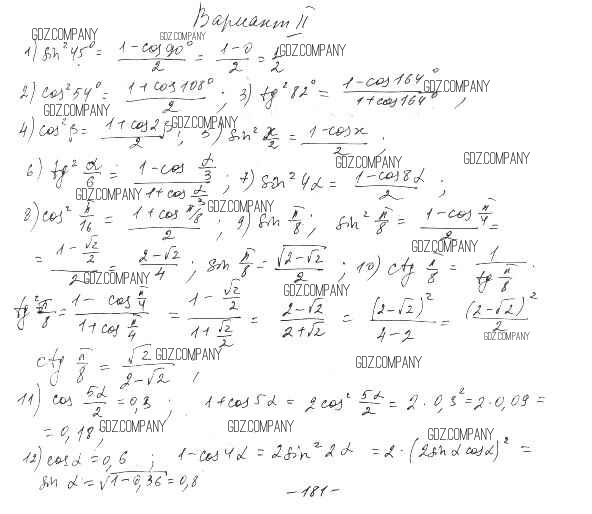 Вариант II
GDZ.COMPANY GDZ.COMPANY
1) sin² 45° = (1-cos90°)/2 = (1-0)/2 = 1/2 GDZ.COMPANY
2) cos² 54° = (1+cos108°)/2 ; 3) tg² 82° = (1-cos164°)/(1+cos164°) ; GDZ.COMPANY
GDZ.COMPANY GDZ.COMPANY
4) cos² β = (1+cos2β)/2 ; 5) sin² x/2 = (1-cosx)/2 ;
GDZ.COMPANY GDZ.COMPANY
6) tg² α/6 = (1-cos α/3)/(1+cos α/3) ; 7) sin² 4α = (1-cos8α)/2 ;
GDZ.COMPANY GDZ.COMPANY
8) cos² π/16 = (1+cos π/8)/2 ; 9) sin π/8 ; sin² π/8 = (1-cos π/4)/2 =
= (1-√2/2)/2 = (2-√2)/4 ; sin π/8 = √(2-√2)/2 ; 10) ctg π/8 = 1/(tg π/8) .
GDZ.COMPANY GDZ.COMPANY
tg² π/8 = (1-cos π/4)/(1+cos π/4) = (1-√2/2)/(1+√2/2) = (2-√2)/(2+√2) = (2-√2)²/(4-2) = (2-√2)²/2
GDZ.COMPANY GDZ.COMPANY
ctg π/8 = √2/(2-√2) , GDZ.COMPANY GDZ.COMPANY
11) cos 5α/2 = 0,3 ; 1+cos5α = 2cos² 5α/2 = 2·0,3² = 2·0,09 =
= 0,18 ; GDZ.COMPANY GDZ.COMPANY GDZ.COMPANY
12) cosα = 0,6 ; 1-cos4α = 2sin² 2α = 2·(2sinαcosα)² =
sin α = √(1-0,36) = 0,8
-181-